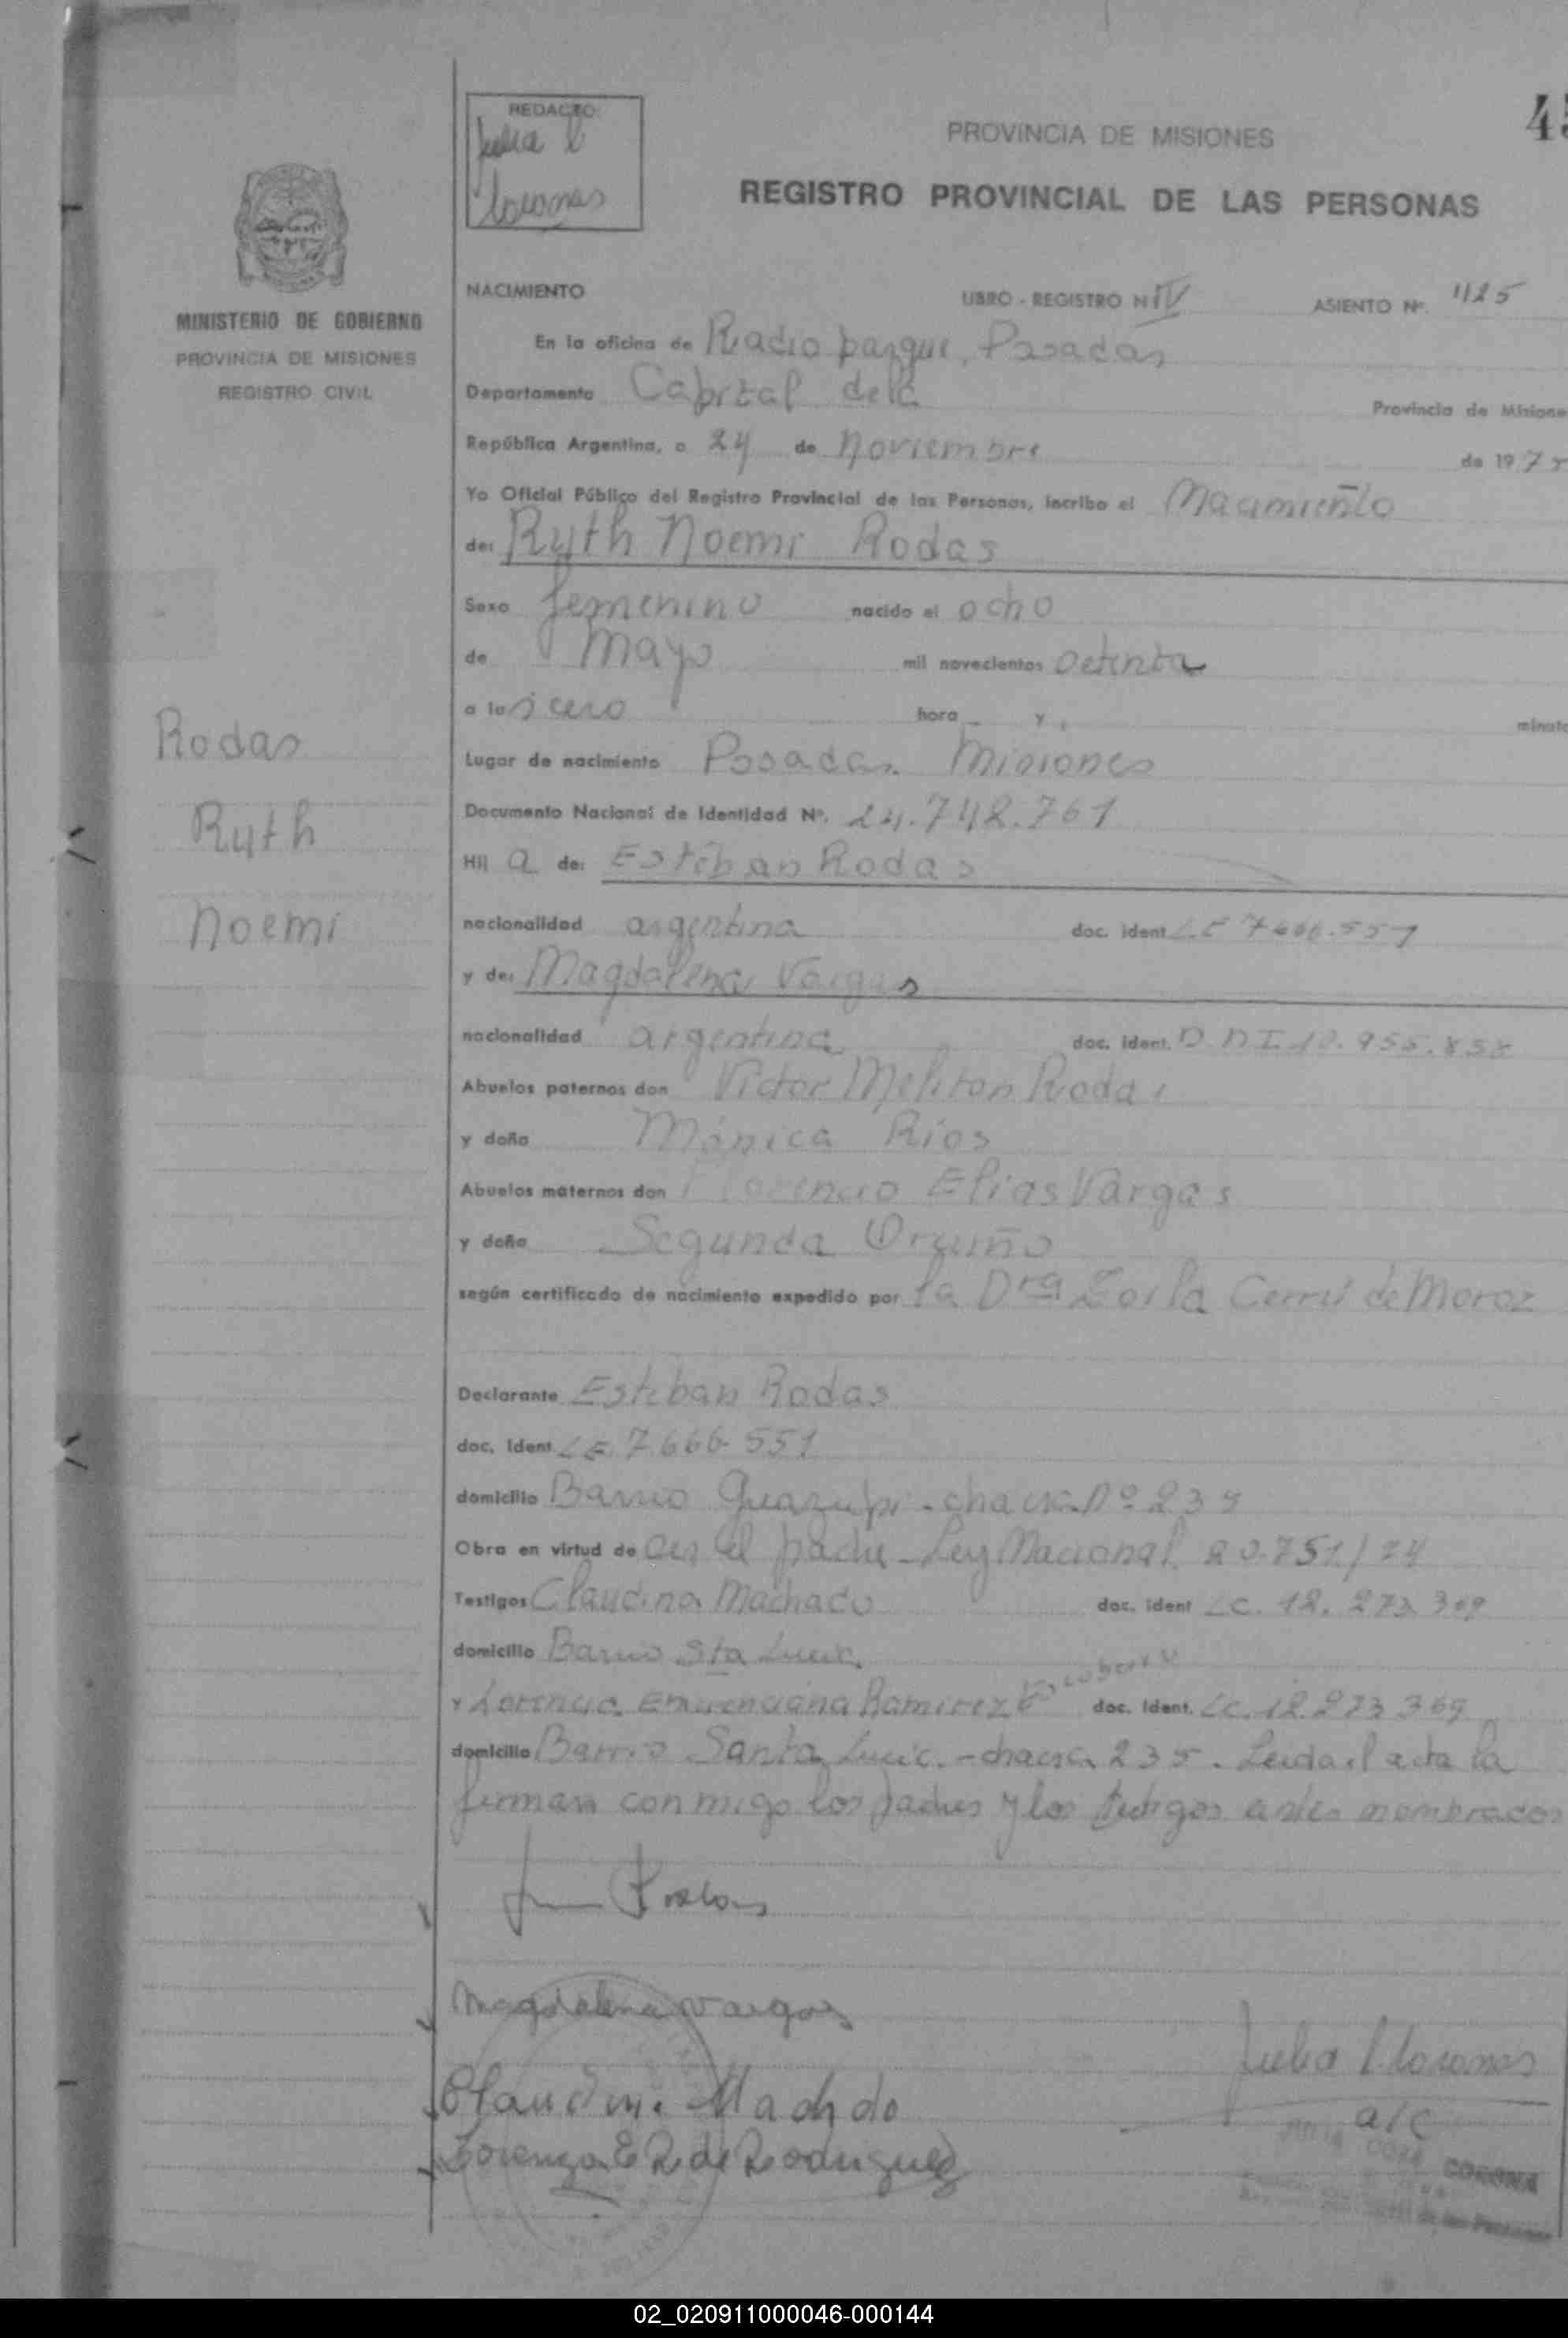 REDACTO:
PROVINCIA DE MISIONES
REGISTRO PROVINCIAL DE LAS PERSONAS
MINISTERIO DE GOBIERNO
PROVINCIA DE MISIONES
REGISTRO CIVIL
NACIMIENTO LIBRO - REGISTRO N IV ASIENTO Nº. 1125
En la oficina de Radio parque, Posadas
Departamento Capital dela Provincia de Misione
República Argentina, a 24 de noviembre de 197
Yo Oficial Público del Registro Provincial de las Personas, incribo el Nacimiento
de: Ruth Noemi Rodas
Sexo femenino nacido el ocho
de Mayo mil novecientos setenta
a las cero hora y minuto
Rodas
Ruth
Noemi
Lugar de nacimiento Posadas Misiones
Documento Nacional de Identidad Nº. 24.742.761
Hij a de: Esteban Rodas
nacionalidad argentina doc. ident LE 7.666.551
y de: Magdalena Vargas
nacionalidad argentina doc. ident. D N I 10.955.858
Abuelos paternos don Victor Meliton Rodas
y doña Mónica Ríos
Abuelos maternos don Florencio Elias Vargas
y doña Segunda
según certificado de nacimiento expedido por la Dra Zoila Cerru de Moroz
Declarante Esteban Rodas
doc. Ident LE 7.666.551
domicilio Barrio chacra Nº
Obra en virtud de ser el padre - Ley Nacional 20.751/74
Testigos Claudina Machado doc. ident LC. 12. 273 309
domicilio Barrio Sta Lucia
y Lorenza Emerenciana Ramirez doc. Ident. LC. 12.273 369
domicilio Barrio Santa Lucia - chacra 235. Leida el acta la
firman conmigo los padres y los testigos antes nombrados
Magdalena Vargas
Claudina Machado
Lorenza E R de Rodriguez
a/c
CORONA
02_020911000046-000144